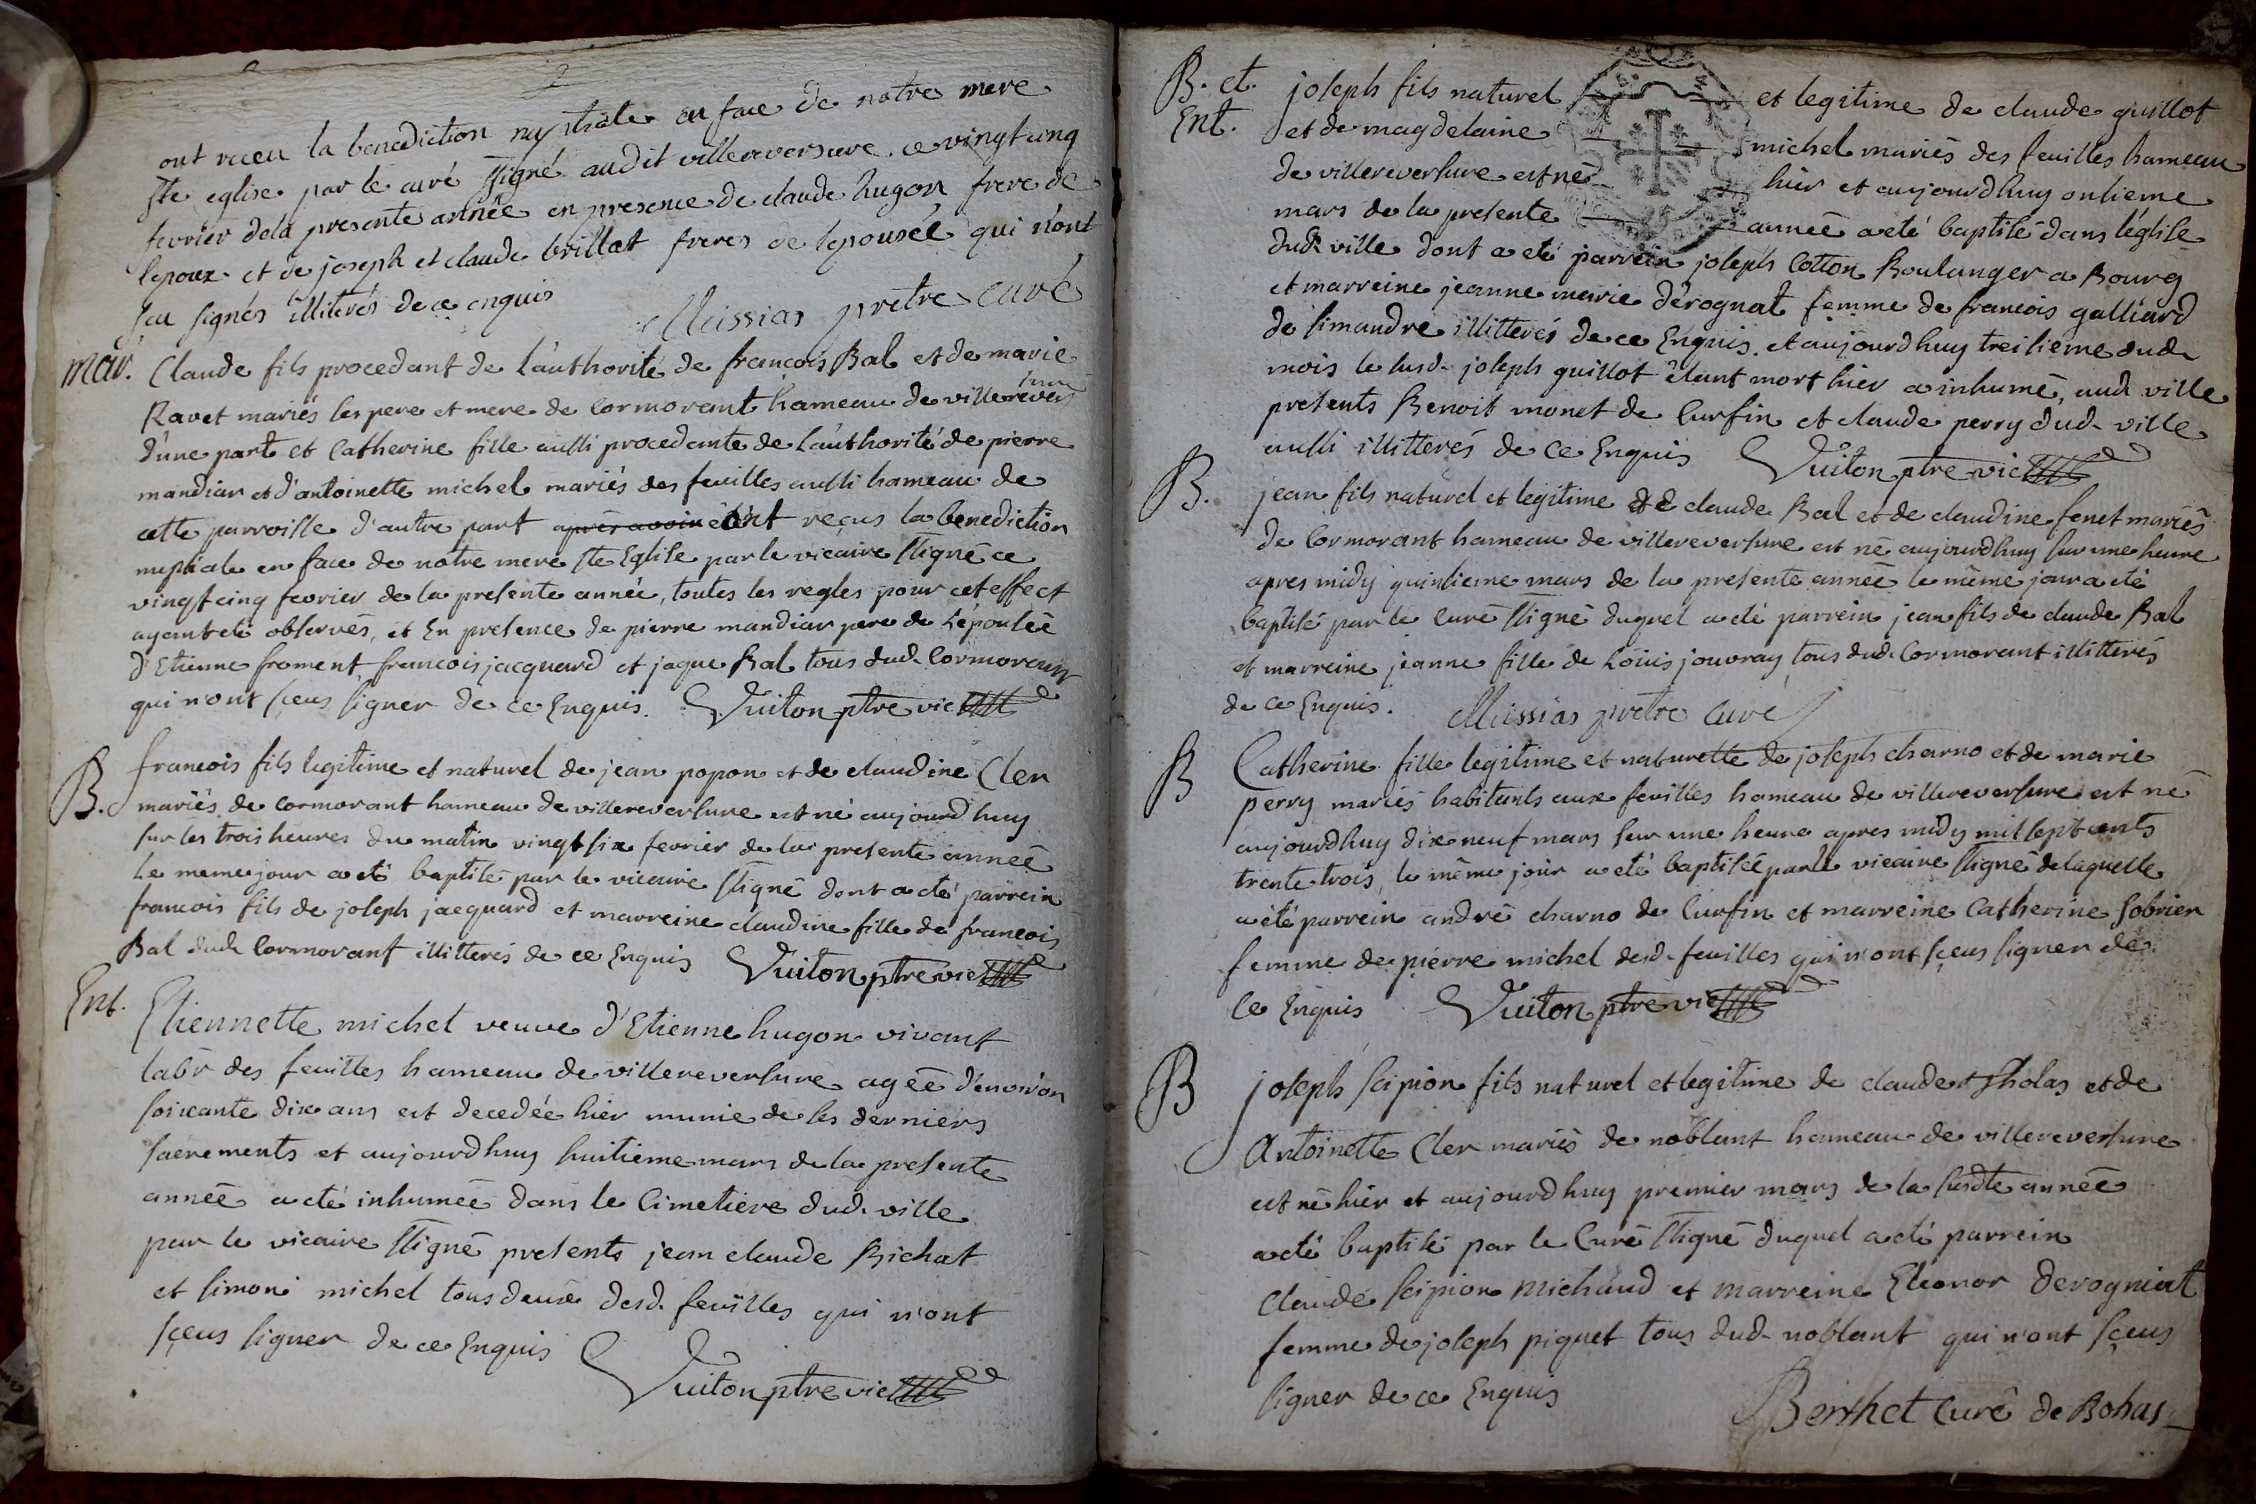 2
ont receu la benediction nuptiale en face de notre mere
ste eglise par le curé ssigné audit villereversure. ce vingt cinq
fevrier dela presente année en presence de claude hugon frere de
lepoux et de joseph et claude brillat freres de lepouseé qui n'ont
sçu signés illiterés de ce enquis
Messias pretre curé
mar. Claude fils procedant de l'authorité de francois Bal et de marie
Ravet mariés ses pere et mere de Cormorant hameau de villerevers
sure
d'une part et Catherine fille aussi procedante de l'authorité de pierre
mandiar et d'antoinette michel mariés des feuilles aussi hameau de
cette parroisse d'autre part après avoir ont reçus la benediction
nuptiale en face de notre mere ste Eglise par le vicaire ssigné ce
vingt cinq fevrier de la presente année, toutes les regles pour cet effect
ayant eté observés, et En presence de pierre mandiar pere de l'épouseé
d'Etienne froment francois jacquard et jaque Bal tous dud. Cormorant
qui n'ont sçeus signer de ce Enquis. Vuiton ptre vic
B. francois fils legitime et naturel de jean popon et de claudine Cler
mariés de cormorant hameau de villereversure est né aujourdhuy
sur les trois heures du matin vingt six fevrier de la presente anneé
le meme jour a eté baptisé par le vicaire ssigné dont a eté parrein
francois fils de joseph jacquard et marreine claudine fille de francois
Bal dud. Cormorant illitterés de ce Enquis Vuiton ptre vic
Ent. Etiennette michel veuve d'Etienne hugon vivant
labr des feuilles hameau de villereversure ageé d'environ
soixante dix ans est decedée hier munie de ses derniers
sacrements et aujourdhuy huitieme mars de la presente
anneé a eté inhumeé dans le Cimetiere dud. ville
par le vicaire ssigné presents jean claude Bichat
et simon michel tous deux desd. feuilles qui n'ont
sçeus signer de ce Enquis
Vuiton ptre vic
B. et. joseph fils naturel et legitime de claude guillot
Ent. et de magdelaine michel mariés des feuilles hameau
de villereversure est né hier et aujourdhuy onsieme
mars de la presente anneé a eté baptisé dans l'église
dud. ville dont a eté parrein joseph Cotton Boulanger a Bourg
et marreine jeanne marie dérognat femme de francois galliard
de simandre illitterés de ce Enquis. et aujourdhuy treisieme dud.
mois le susd. joseph guillot étant mort hier a inhumé, aud. ville
presents Benoit monet de Cursin et claude perry dud. ville
aussi illitterés de ce Enquis Vuiton ptre vic
B. jean fils naturel et legitime de claude Bal et de claudine fenet mariés
de Cormorant hameau de villereversure est né aujourdhuy sur une heure
apres midy quinsieme mars de la presente anneé le même jour a eté
baptisé par le curé ssigné duquel a eté parrein jean fils de claude Bal
et marreine jeanne fille de Loüis jouvray tous dud. Cormorant illitterés
de ce Enquis. Messias pretre curé
B Catherine fille legitime et naturelle de joseph charno et de marie
perry mariés habitants aux feuilles hameau de villereversure est né
aujourdhuy dix neuf mars sur une heure apres midy mil sept cents
trente trois, le même jour a eté baptiseé par le vicaire ssigné de laquelle
a été parrein andré charno de Cursin et marreine Catherine sobrier
femme de pierre michel desd. feuilles qui n'ont sçeus signer de
Ce Enquis Vuiton ptre vic
B joseph scipion fils naturel et legitime de claude et de
Antoinette Cler mariés de noblant hameau de villereversure
est né hier et aujourdhuy premier mars de la susdte anneé
a eté baptisé par le Curé ssigné duquel a eté parrein
Claude scipion Michaud et marreine Eleonor derogniat
femme de joseph piquet tous dud. noblant qui n'ont sçeus
signer de ce Enquis
Berthet Curé de Bohas